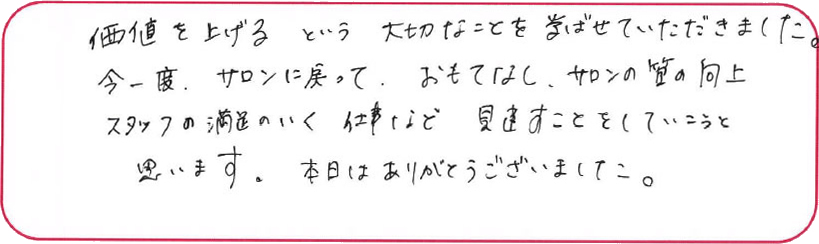 価値を上げる という 大切なことを 学ばせていただきました。
今一度、サロンに戻って、おもてなし、サロンの質の向上
スタッフの満足のいく 仕事など 見直すことをしていこうと
思います。本日はありがとうございました。